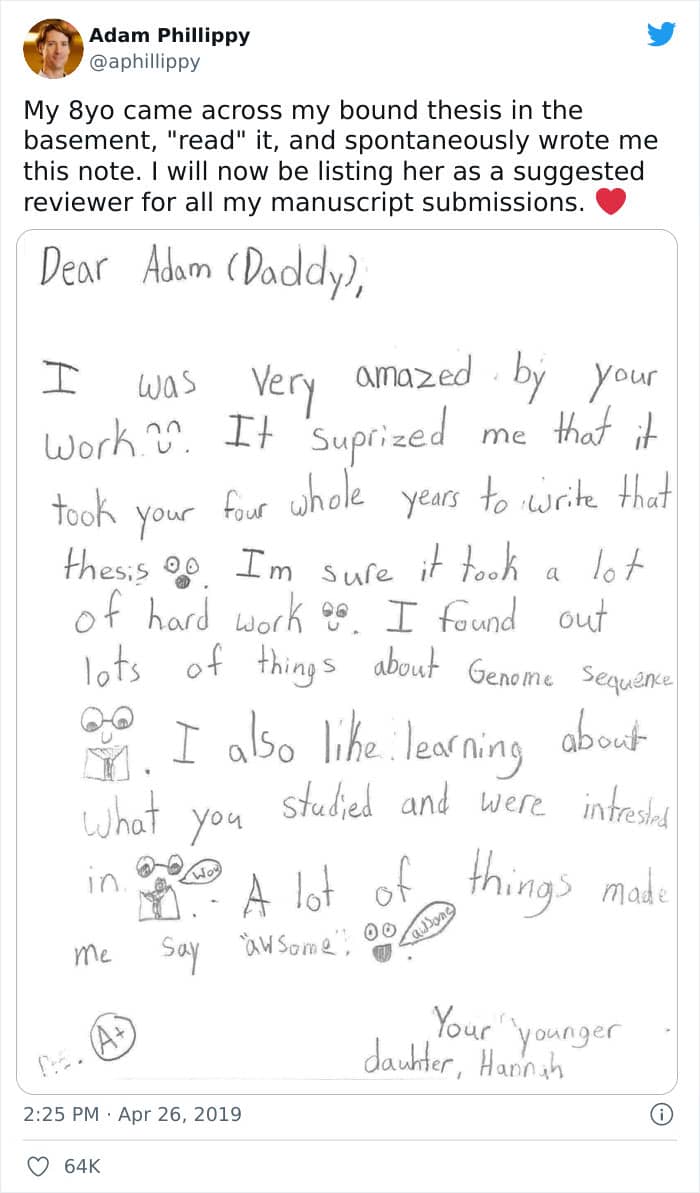 Adam Phillippy
@aphillippy
My 8yo came across my bound thesis in the
basement, "read" it, and spontaneously wrote me
this note. I will now be listing her as a suggested
reviewer for all my manuscript submissions. ❤️
Dear Adam (Daddy),
I was very amazed by your
work. It suprized me that it
took your four whole years to write that
thesis. Im sure it took a lot
of hard work. I found out
lots of things about Genome Sequence
. I also like learning about
what you studied and were intrested
in. Wow A lot of things made
me say "awsome". awsome
A+
Your younger
dauhter, Hannah
2:25 PM · Apr 26, 2019
64K